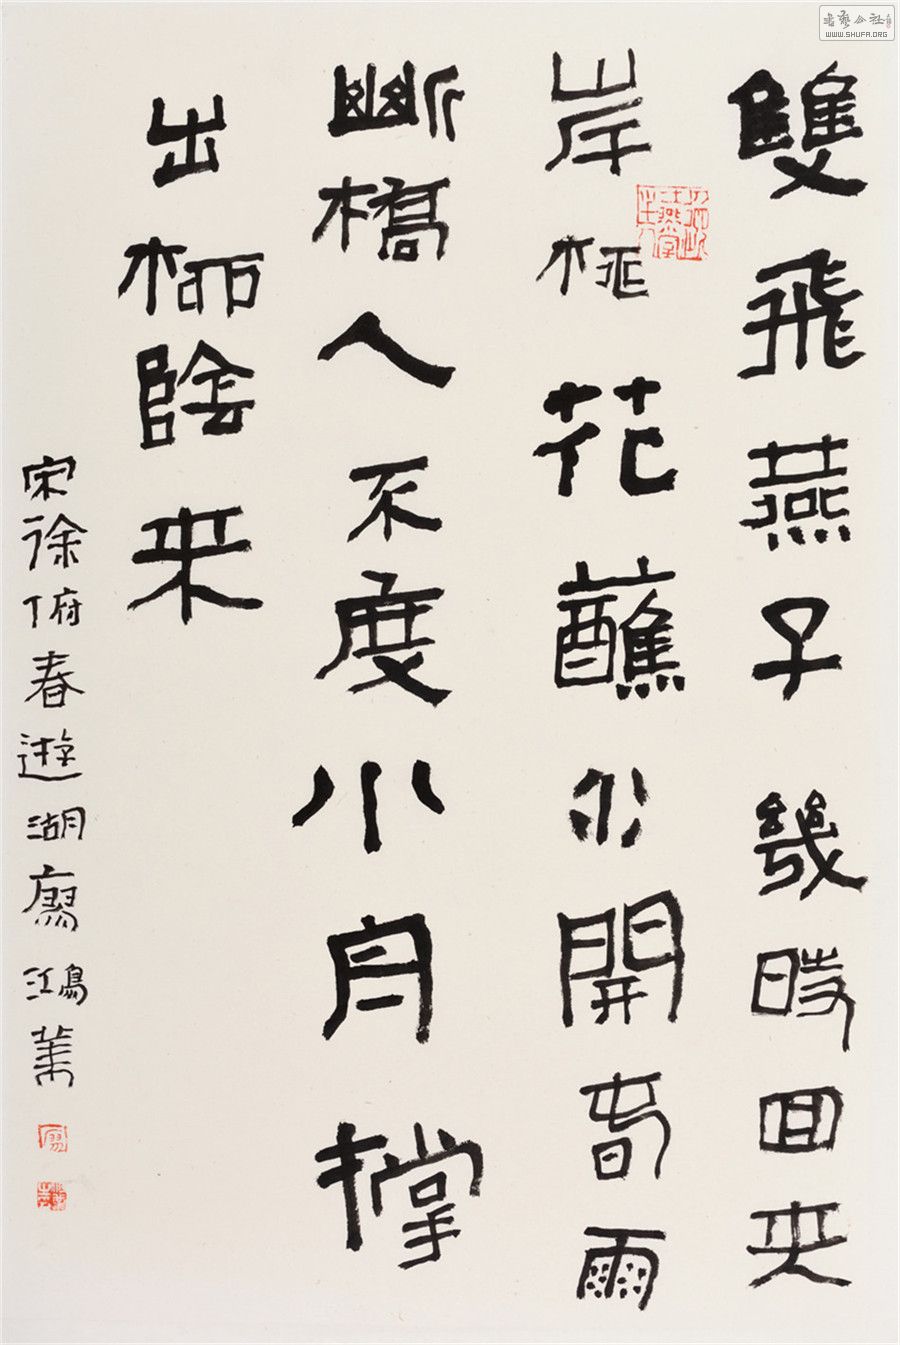 雙飛燕子幾時回夾
岸桃花蘸水開春雨
斷橋人不度小舟撐
出柳陰来
宋徐俯春遊湖廖鴻
書藝公社
WWW.SHUFA.ORG